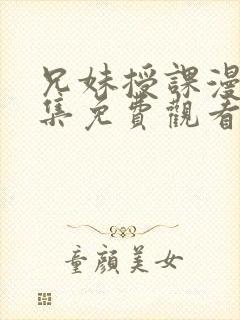 兄妹授課漫
集免費觀看
童顔美女